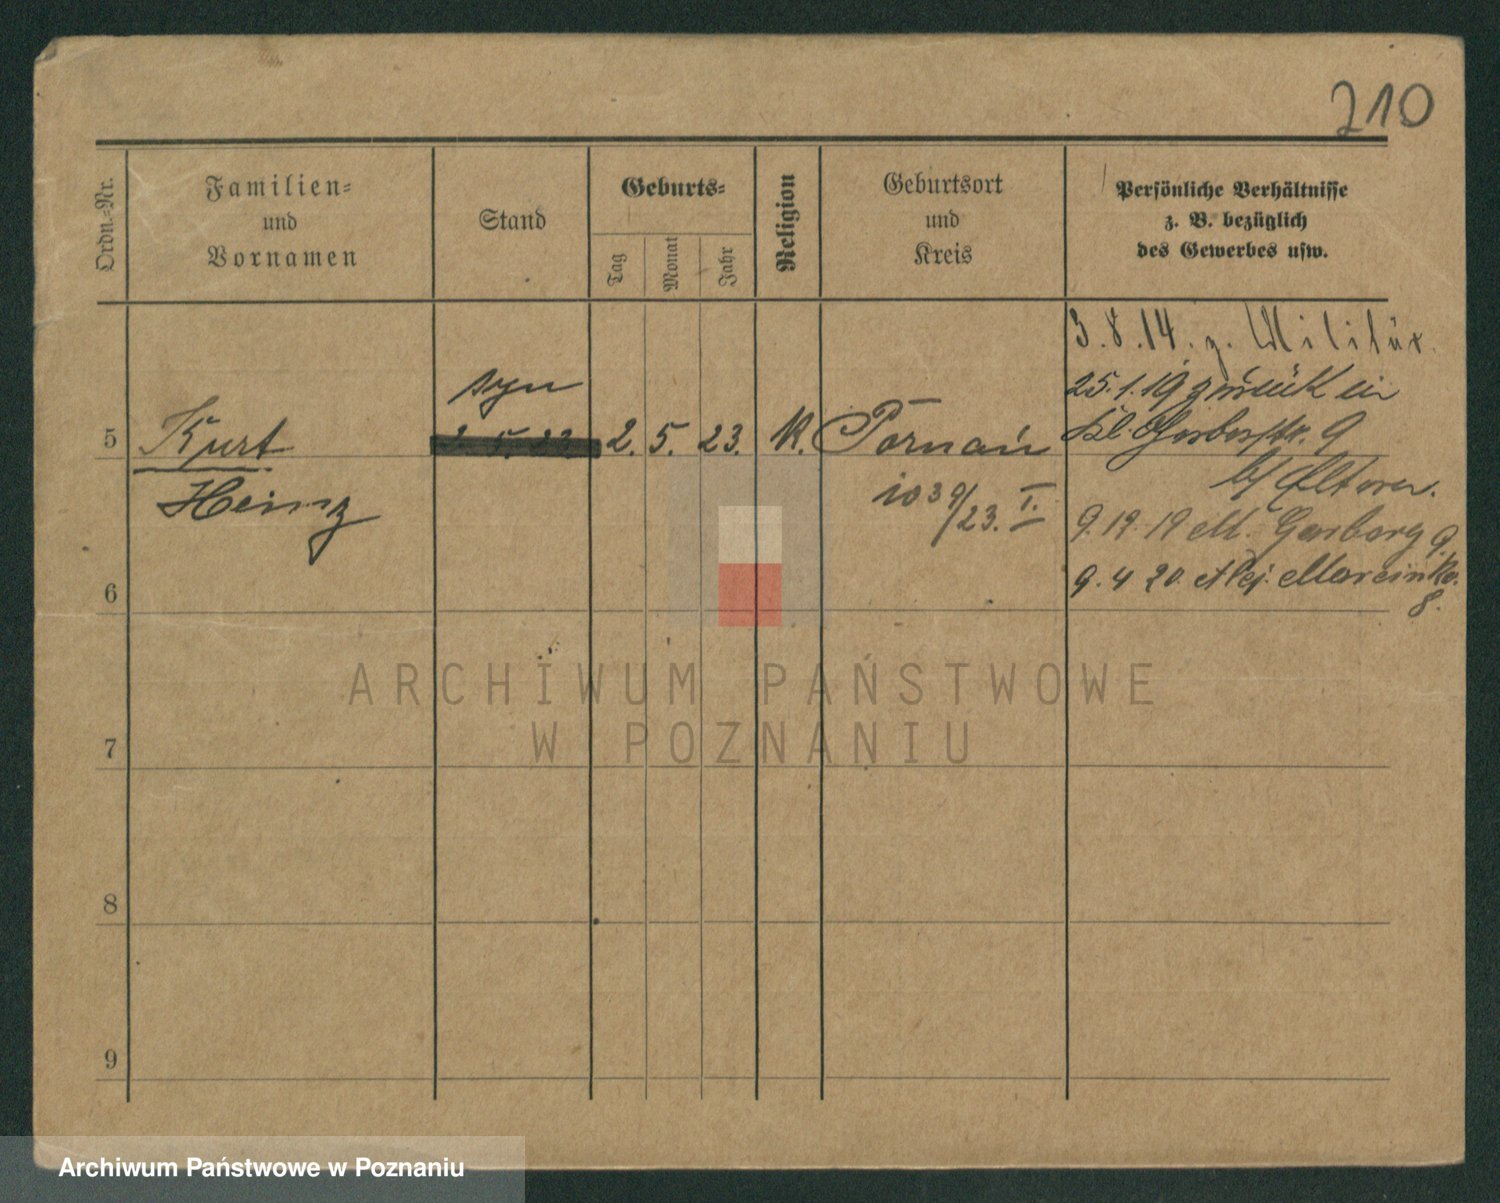 210
Ordn.-Nr.
Familien-
und
Vornamen
Stand
Geburts-
Tag
Monat
Jahr
Religion
Geburtsort
und
Kreis
Persönliche Verhältnisse
z. B. bezüglich
des Gewerbes usw.
3.8.14. z. Militär.
25.1.19 zurück in
Kl. Gerberstr. 9
b/ Eltern.
9.12.19 M. Garbary 9.
9.4 20. Alej. Marcink.
8.
5
Kurt
Heinz
syn
2. 5. 23.
2. 5. 23.
K.
Poznań
1039/23. I.
6
7
8
9
ARCHIWUM PAŃSTWOWE
W POZNANIU
Archiwum Państwowe w Poznaniu